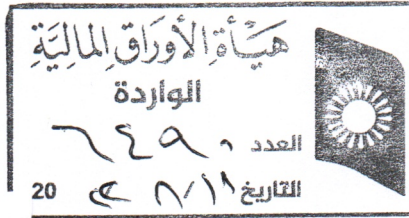 هيأة الأوراق المالية
الواردة
العدد ٦٤٩٠
التاريخ 20